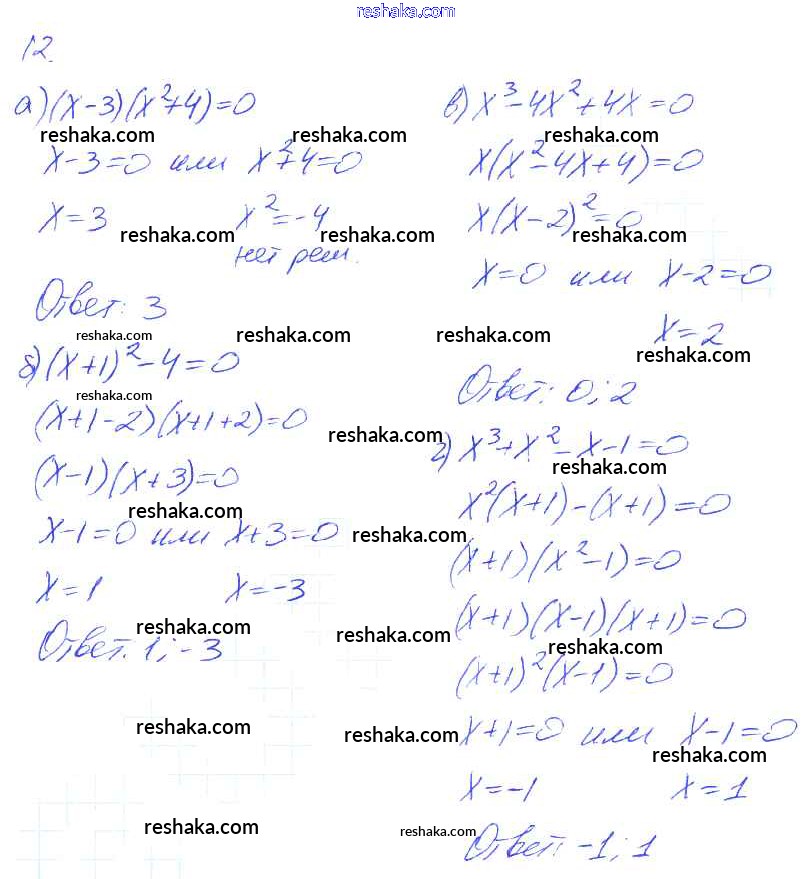 reshaka.com
12.
а) (x-3)(x²+4)=0
reshaka.com reshaka.com
x-3=0 или x²+4=0
x=3 x²=-4
reshaka.com reshaka.com
нет реш.
Ответ: 3
reshaka.com reshaka.com
б) (x+1)²-4=0
reshaka.com
(x+1-2)(x+1+2)=0
reshaka.com
(x-1)(x+3)=0
reshaka.com
x-1=0 или x+3=0
reshaka.com
x=1 x=-3
reshaka.com
Ответ: 1; -3
reshaka.com
reshaka.com
reshaka.com
reshaka.com
в) x³-4x²+4x=0
reshaka.com
x(x²-4x+4)=0
x(x-2)²=0
reshaka.com
x=0 или x-2=0
reshaka.com
x=2
reshaka.com
Ответ: 0; 2
г) x³+x²-x-1=0
reshaka.com
x²(x+1)-(x+1)=0
(x+1)(x²-1)=0
(x+1)(x-1)(x+1)=0
reshaka.com
(x+1)²(x-1)=0
x+1=0 или x-1=0
reshaka.com
x=-1 x=1
reshaka.com
Ответ: -1; 1